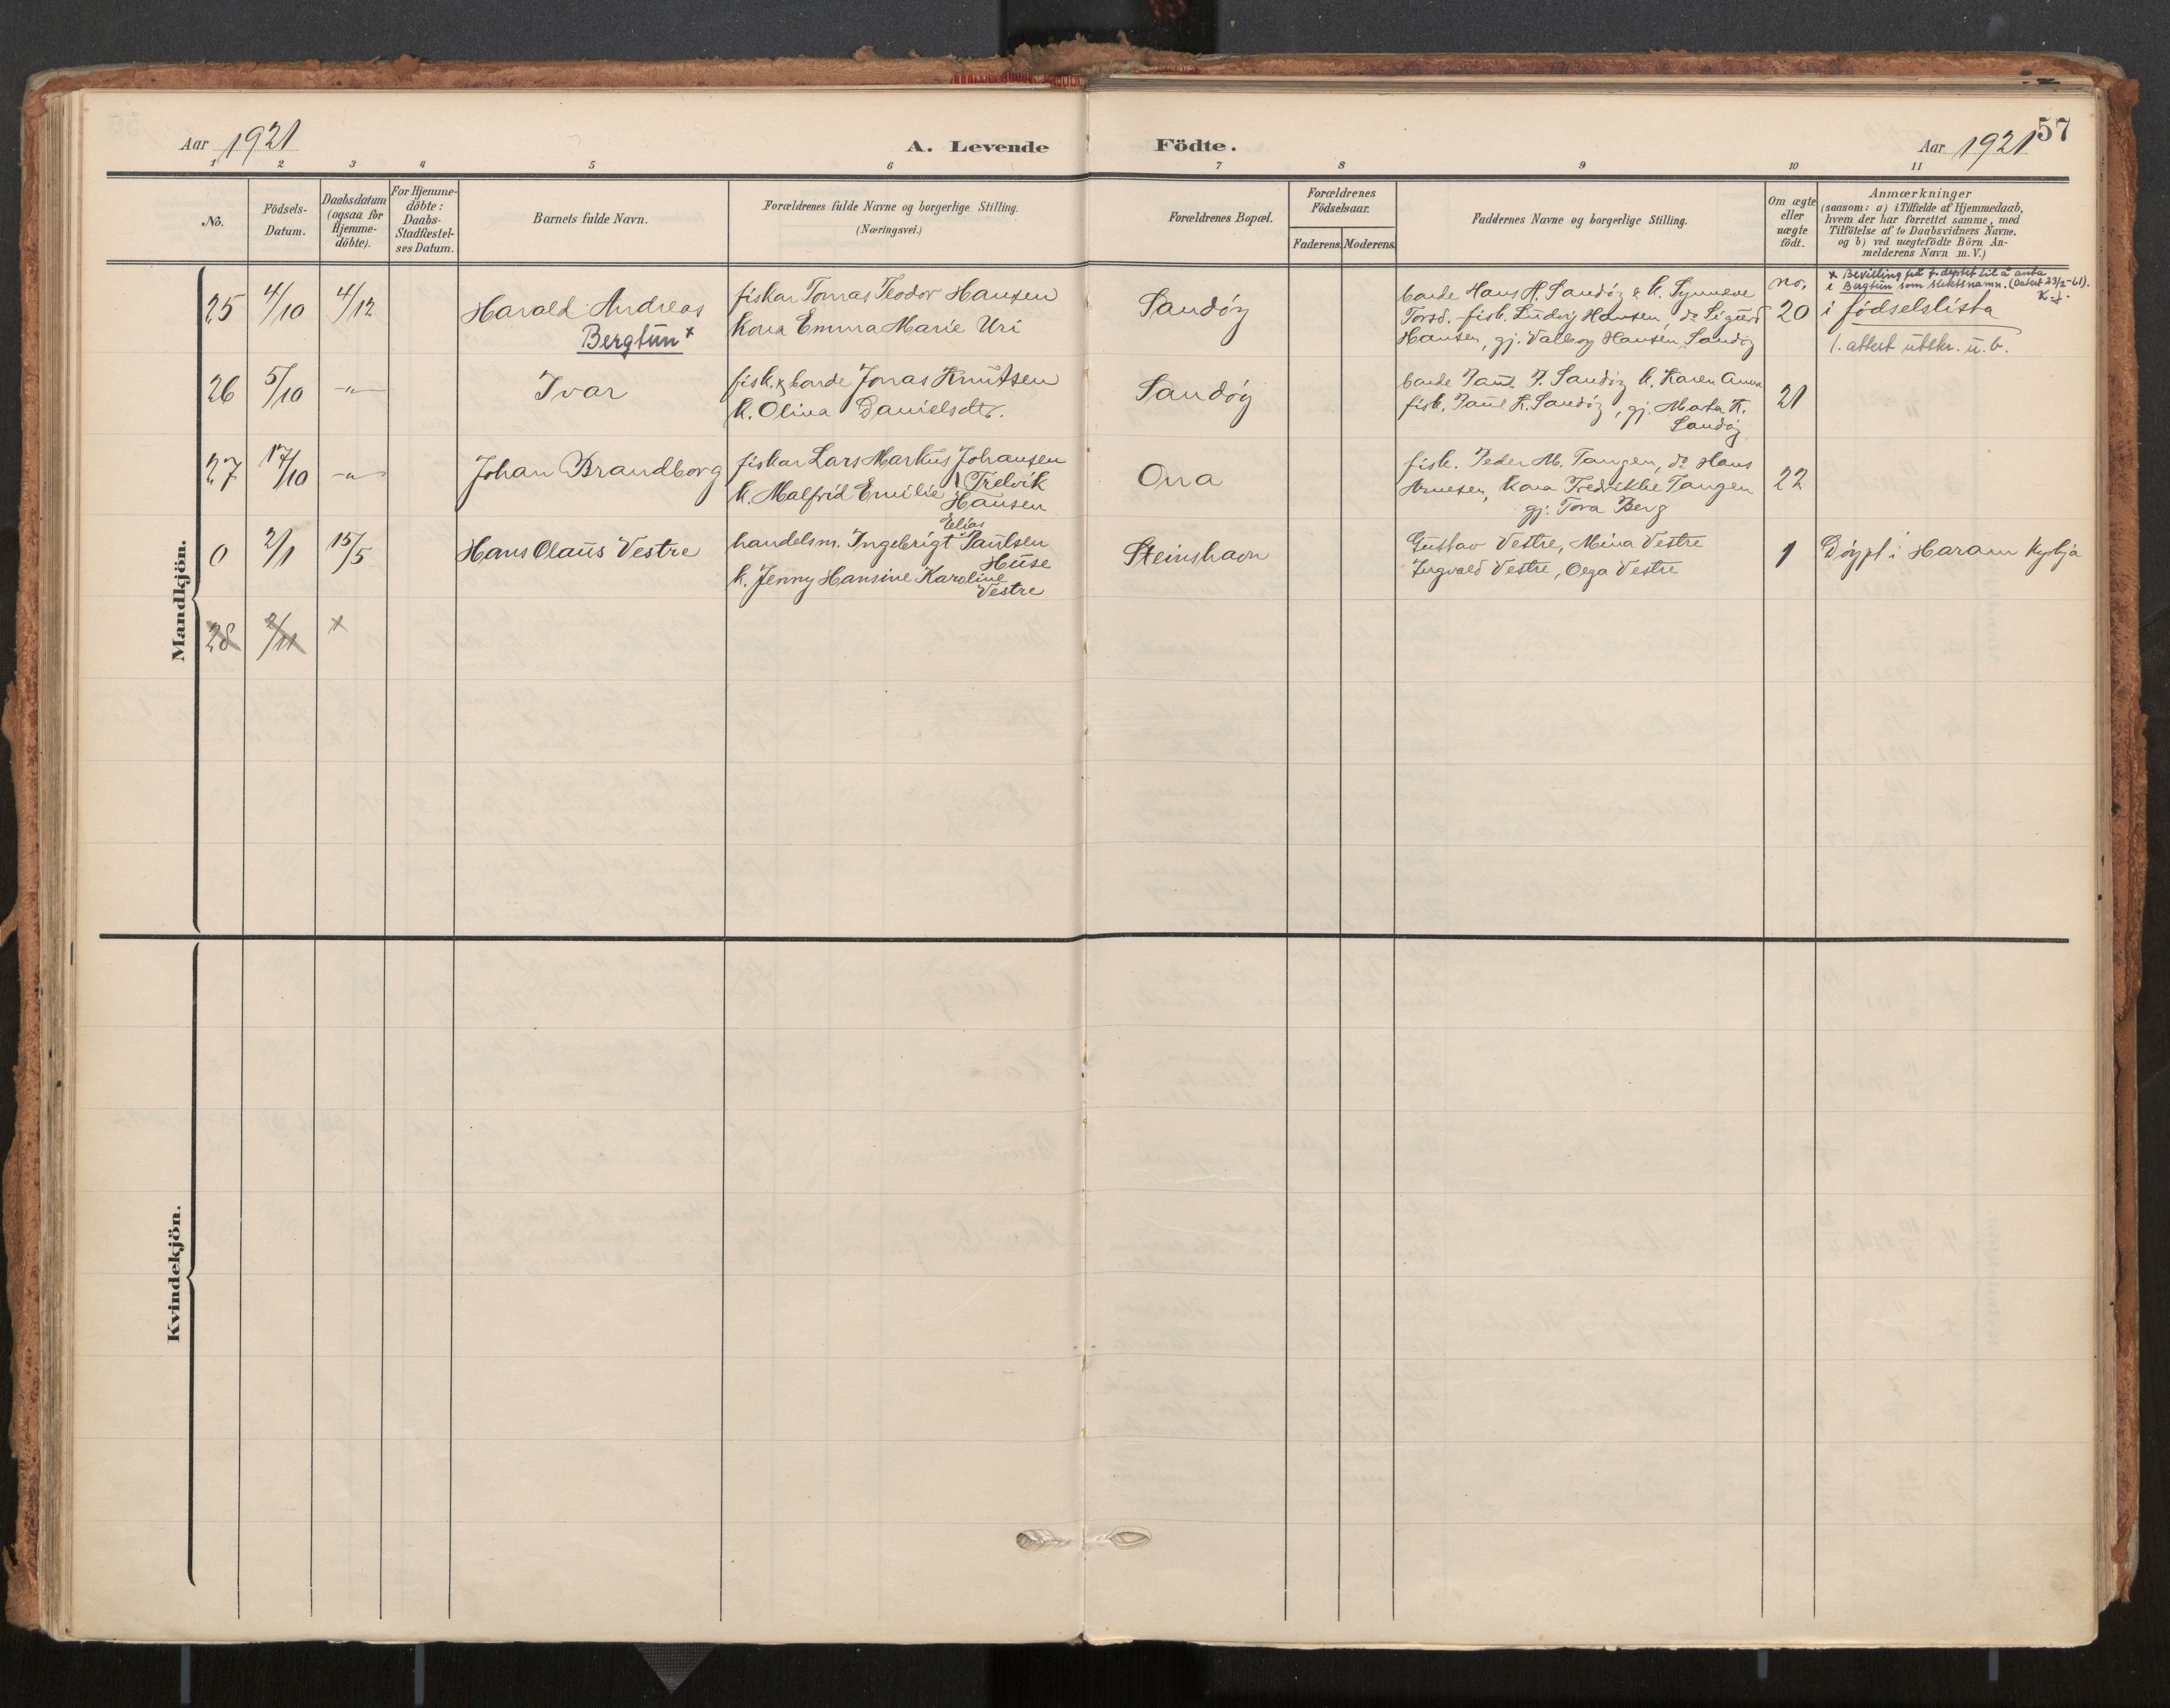 57
Aar 1921
A. Levende Födte.
Aar 1921
1 2 3 4 5 6 7 8 9 10 11
No.
Födsels-
Datum.
Daabsdatum
(ogsaa for
Hjemme-
döbte).
For Hjemme-
döbte:
Daabs-
Stadfæstel-
ses Datum.
Barnets fulde Navn.
Forældrenes fulde Navne og borgerlige Stilling.
(Næringsvei.)
Forældrenes Bopæl.
Forældrenes
Födselsaar.
Faderens. Moderens.
Faddernes Navne og borgerlige Stilling.
Om ægte
eller
uægte
födt.
Anmærkninger
(saasom: a) i Tilfælde af Hjemmedaab,
hvem der har forrettet samme, med
Tilföielse af to Daabsvidners Navne,
og b) ved uægtefödte Börn An-
melderens Navn m. V.)
Mandkjön.
25 4/10 4/12
Harald Andreas
Bergtun x
fiskar Tomas Teodor Hansen
Kona Emma Marie Uri
Sandöy
bonde Hans A. Sandöy & k. Synneve
Torsd. fisk. Ludvig Hansen, do Sigurd
Hansen, gj. Valborg Hansen, Sandöy
no.
20
x Bevilling frå f. deptet til å anta
i Bergtun som slektsnamn. (Datert 23/2-61).
K. J.
i födselslista
1. attest utskr. u. b.
26 5/10 -"-
Ivar
fisk. & bonde Jonas Knutsen
k. Olina Danielsdtr.
Sandöy
bonde Paul P. Sandöy k. Karen Anna
fisk. Paul K. Sandöy, gj. Marta K.
Sandöy
21
27 17/10 -"-
Johan Brandborg
fiskar Lars Markus Johansen
Trelvik
k. Malfrid Emilie Hansen
Ona
fisk. Peder M. Tangen, do Hans
Arnesen, Kona Fredrikke Tangen
gj. Tora Berg
22
0 2/1 15/5
Hans Olaus Vestre
Elias
handelsm. Ingebrigt Paulsen
Huse
k. Jenny Hansine Karoline
Vestre
Steinshavn
Gustav Vestre, Mina Vestre
Ingvald Vestre, Olga Vestre
1
Döypt i Haram Kyrkja
28 2/11 x
Kvindekjön.